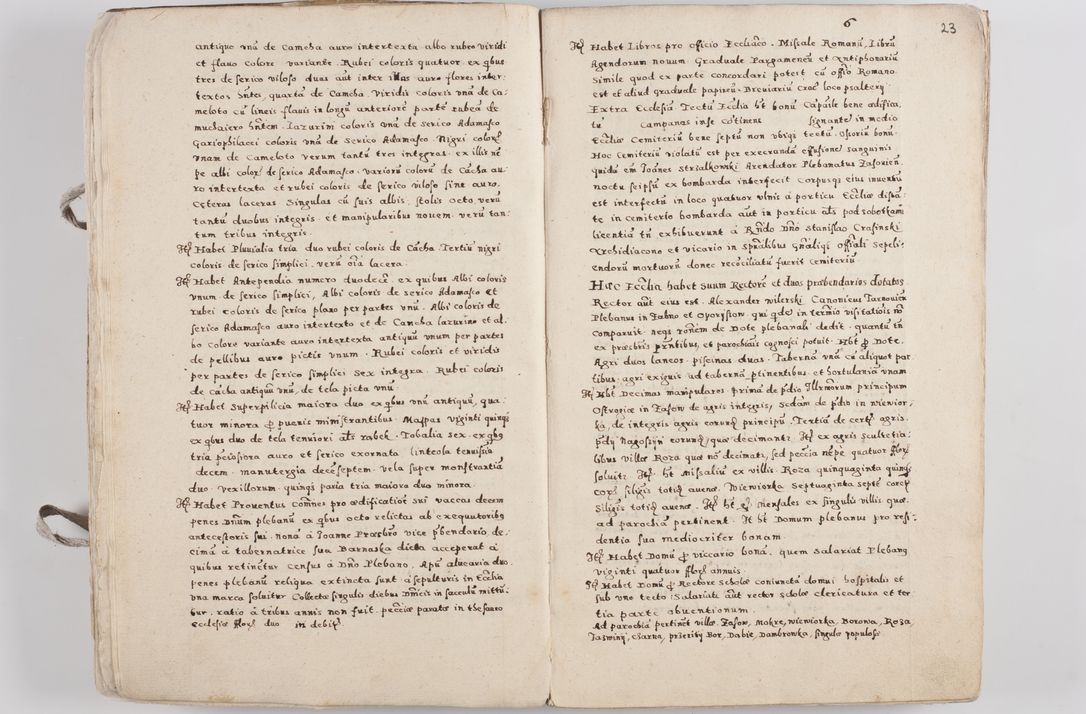 antiquo vnã de Camcha auro intertexta albo rubro viridi
et flauo colore variante. Rubei coloris quatuor. ex qbus
tres de serico viloso duas aut̃ inter illas auro flores inter:
textos hñtes, quartã de Camcha. Viridis coloris vnã de Ca:
meloto cũ lineis flauis in longũ anteriorẽ partẽ rubeã de
muchaiero hñtem. Lazurini coloris vnã de serico Adamasco
Gariophilacei coloris vnã de serico Adamasco. Nigri color̃
vnam de Cameloto verum tantũ tres integras. ex illis nẽ
pe albi color̃ de serico Adamasco. variorũ colorũ de Cãcha au:
ro intertexta et rubei coloris de serico viloso sine auro.
Cęteras laceras. Singulas cũ suis albis. stolis octo verũ
tantũ duobus integris. et manipularibus nouem. verũ tan:
tum tribus integris.
It̃ Habet Pluuialia tria duo rubei coloris de Cãcha Tertiũ nigri
coloris de serico simplici. verũ oĩa lacera.
It̃ Habet Antependia numero duodecĩ. ex quibus Albi coloris
vnum de serico simplici, Albi coloris de serico Adamasco et
rubei coloris de serico plano per partes vnũ. Albi coloris de
serico Adamasco auro intertexto et de Camcha lazurino et al:
bo colore variante auro intertexta antiquũ vnum per partes
de pellibus auro pictis vnum. Rubei coloris et viridis
per partes de serico simplici Sex integra. Rubei coloris
de cãcha antiquũ vnũ, de tela picta vnũ
It̃ Habet Superpilicia maiora duo ex qbus vnũ antiquũ, qua:
tuor minora ꝓ pueris ministrantibus. Mappas viginti quinq̃
ex qbus duo de tela tenuiori als rabek. Tobalia sex. ex qbg
tria peiosiora auro et serico exornata linteola tenuissia
decem. manutergia decẽseptem. vela super monstrantiã
duo. vexillorum. quinq̃ paria tria maiora duo minora.
It̃ Habet Prouentus com̃nes pro ædificatiõe sui vaccas decem
penes Dñum plebanũ ex qbus octo relictas ab exequutoribg
antecessoris sui. nonã à Joanne Præsbr̃o vice pbendario de:
cimã à tabernatrice sua Barnaska dicta acceperat à
quibus retinetur census à Dño Plebano. Apũ aluearia duo
penes plebanũ reliqua extincta sunt à sepulturis in Ecclia
vna marca soluitur Collectæ singulis diebus Dñicis in sacculũ mittũ:
tur. ratio à tribus annis non fuit. pecciæ paratæ in thesauro
Ecclesiæ flor̃ duo in debit̃
6
23
It̃ Habet Libros pro officio Eccliaco. Missale Romanũ, Librũ
Agendorum nouum Graduale Pargameneũ et Antiphonariũ
Simile quod ex parte concordari potest cũ offio Romano.
est et aliud graduale papireũ. Breuiariũ Crac̃ loco psalterij
Extra Ecclesiã Tectũ Ecclia ht bonũ Capaile bene ædifica,
tũ Campanas inse cõtinent signante in medio
Eccliæ Cemiteriũ bene septũ non vbiqz tectũ. Ostoriũ bonũ.
Hoc Cemiteriũ violatũ est per execrandã effusionẽ sanguinis
quidã em̃ Joãnes Strzalkowski Arendator Plebanatus Zassouien.
noctu seipsũ ex bombarda interfecit Corpusqz eius inuentũ
est interfectũ in loco quatuor vlnis à porticu Eccliæ distã:
te in cemiterio bombarda aũt in porticu als pod sobotkami
licentiã tñ exhibuerunt à Rñdo Dño Stanislao Crasinski
Archidiacono et vicario in spralibus Gñaliqz offiali Sepeli:
endorũ mortuorũ donec recõciliatũ fuerit cemiteriũ
Hæc Ecclia habet suum Rectorẽ et duos præbendarios dotatos
Rector aũt eius est. Alexander wilerski Canonicus Tarnouień
Plebanus in Zabno et Oporyszon. qui qde in termĩo visitatiois nõ
comparuit. neqz rõnem de Dote plebanali dedit. quantũ tñ
ex præsbris prñtibus, et parochiais cognosci potuit. Hbt ꝓ Dote.
Agri duos laneos. piscinas duas. Tabernã vnã cũ aliquot par
tibus agri exiguis ad tabernã ptinentibus et hortulaniã vnam
It̃ Hbt Decimas manipulares primã de pdio Illrmorum principum
Ostrogiæ in Zassow de agris integris, Secdam de pdio in wiewior,
ka, de integris agris eorundẽ principũ. Tertiã de certis agris
pdij Nagoszyn eorundẽ, quæ decimant. It̃ ex agris scultetia:
libus villæ Roza quæ nõ decimat, sed peccia nẽpe quatuor flor̃
soluit. It̃ ht Missaliũ ex villis. Roza quinquaginta quinqz
Cor̃ siliginis totidẽ auenæ. Wiewiorka Septuaginta septẽ coreć
Siliginis totidẽ auenæ. It̃ ht et mensales ex singulis villis quæ
ad parochiã pertinent. It ht Domum plebanus pro resi,
dentia sua mediocriter bonam.
It̃ Habet Domũ ꝓ viccario bonã. quem salariat Plebang
viginti quatuor flor̃ annuis.
It̃ Habet Domũ ꝓ Rectore scholæ coniunctã domui hospitalis et
sub vno tecto. Salariat aũt rector scholæ clericatura et ter
tia parte obuentionum.
Ad parochiã pertinẽt villæ Zassow, Mokre, wiewiorka, Borowa, Roza
Jazwiny, Czarna, przeryty Bor, Dabie, Dambrowka, singulæ populosæ